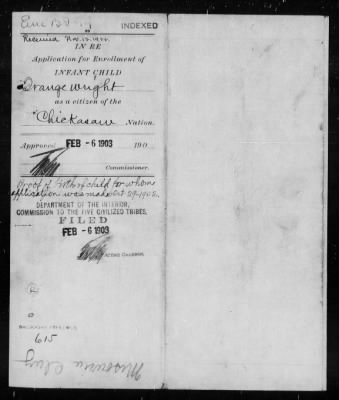 INDEXED
Received Nov. 12, 1902.
IN RE
Application for Enrollment of
INFANT CHILD
Orange Wright
as a citizen of the
Chickasaw Nation.
Approved FEB - 6 1903 190
Commissioner.
Proof of birth of child for whom
application was made Oct 29-1902.
DEPARTMENT OF THE INTERIOR,
COMMISSION TO THE FIVE CIVILIZED TRIBES.
FILED
FEB - 6 1903
ACTING CHAIRMAN.
615